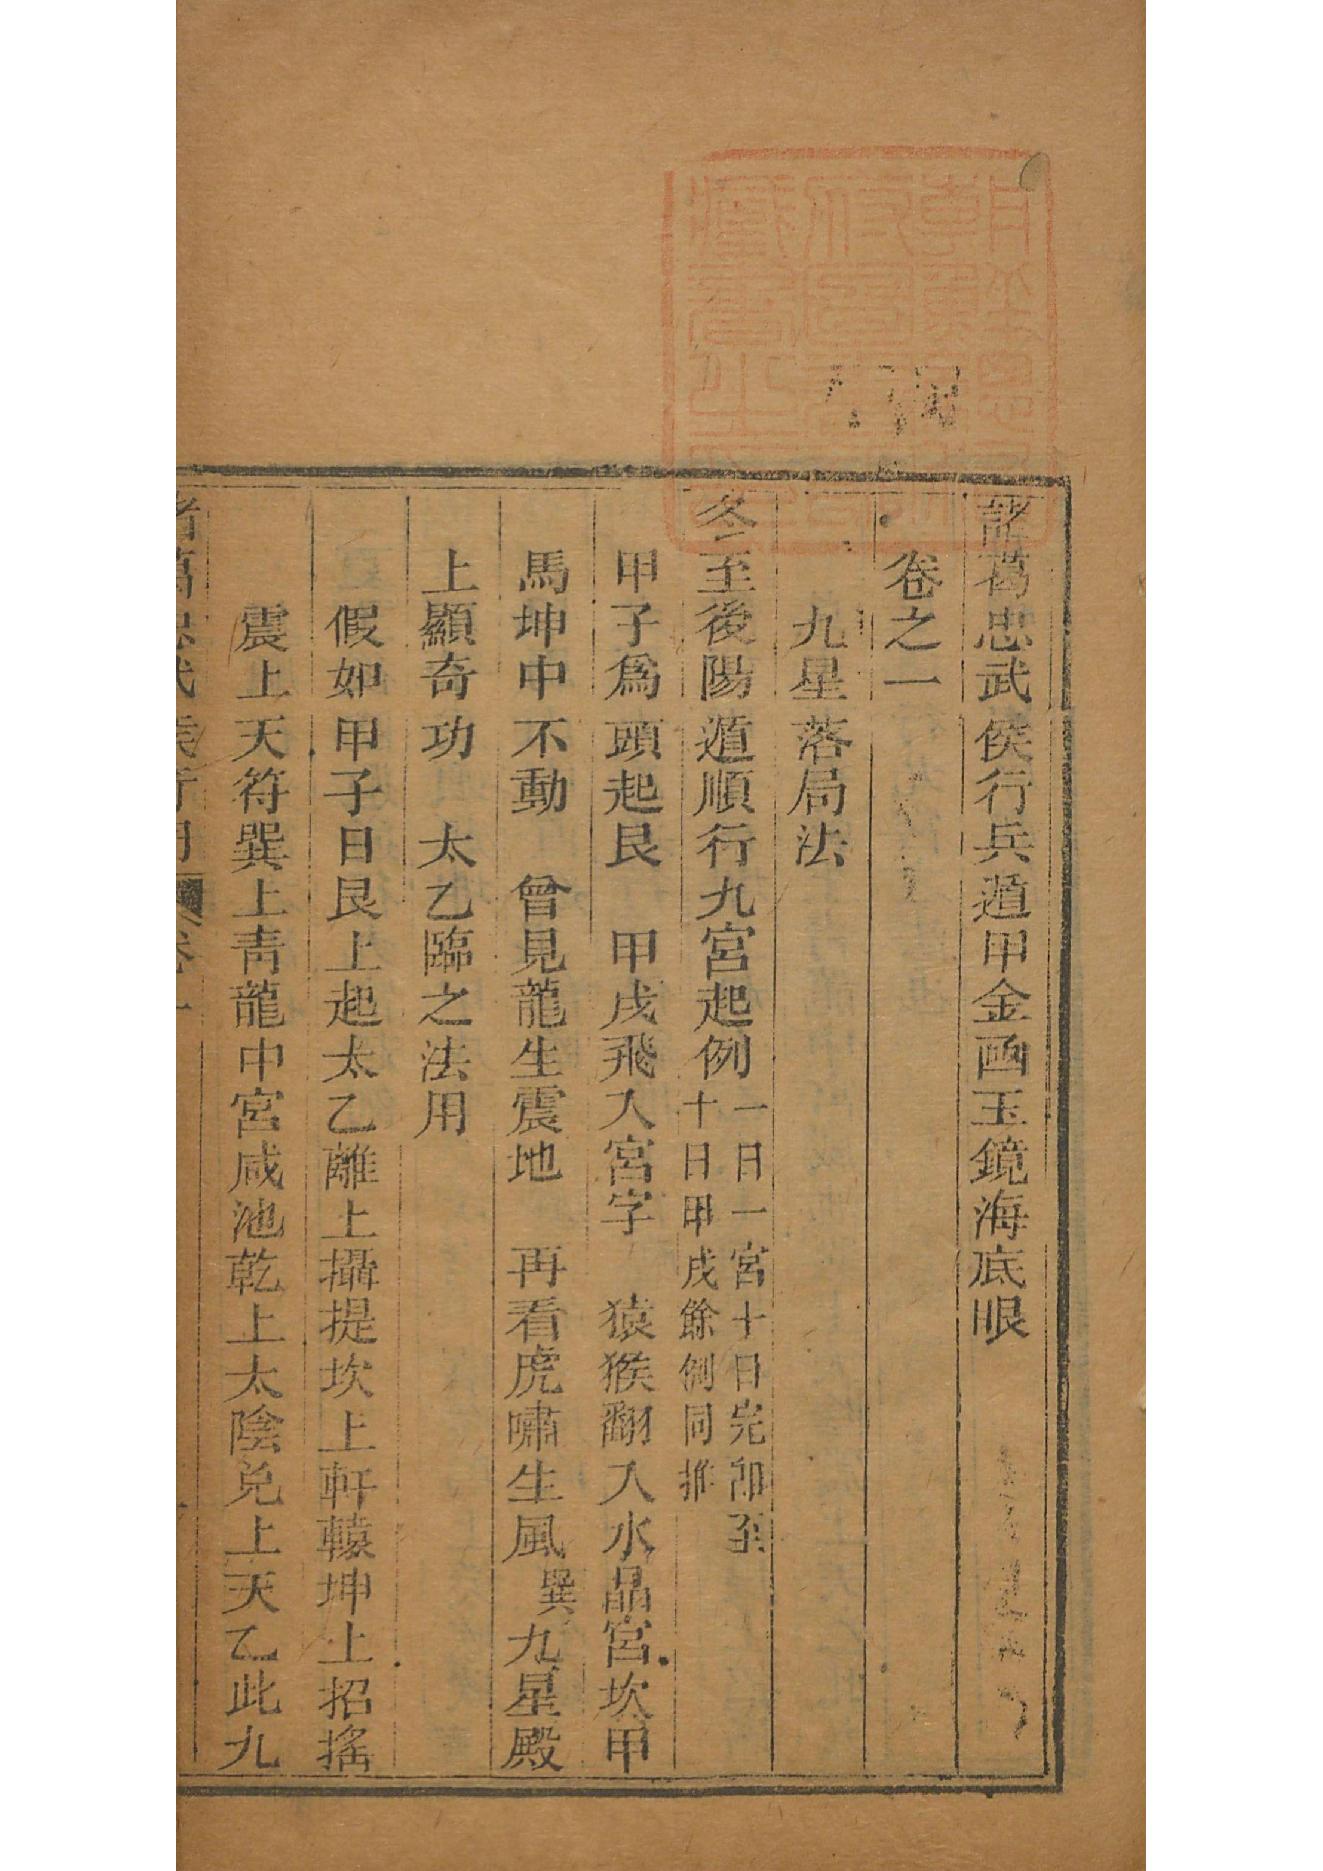 諸葛忠武侯行兵遁甲金函玉鏡海底眼
卷之一
九星落局法
冬至後陽遁順行九宮起例一日一宮十日完卽至
十日甲戌餘例同推
甲子爲頭起艮　甲戌飛入宮字　猿猴翻入水晶宮坎甲
馬坤中不動　曾見龍生震地　再看虎嘯生風巽九星殿
上顯奇功　太乙臨之法用
假如甲子日艮上起太乙離上攝提坎上軒轅坤上招搖
震上天符巽上青龍中宮咸池乾上太陰兌上天乙此九